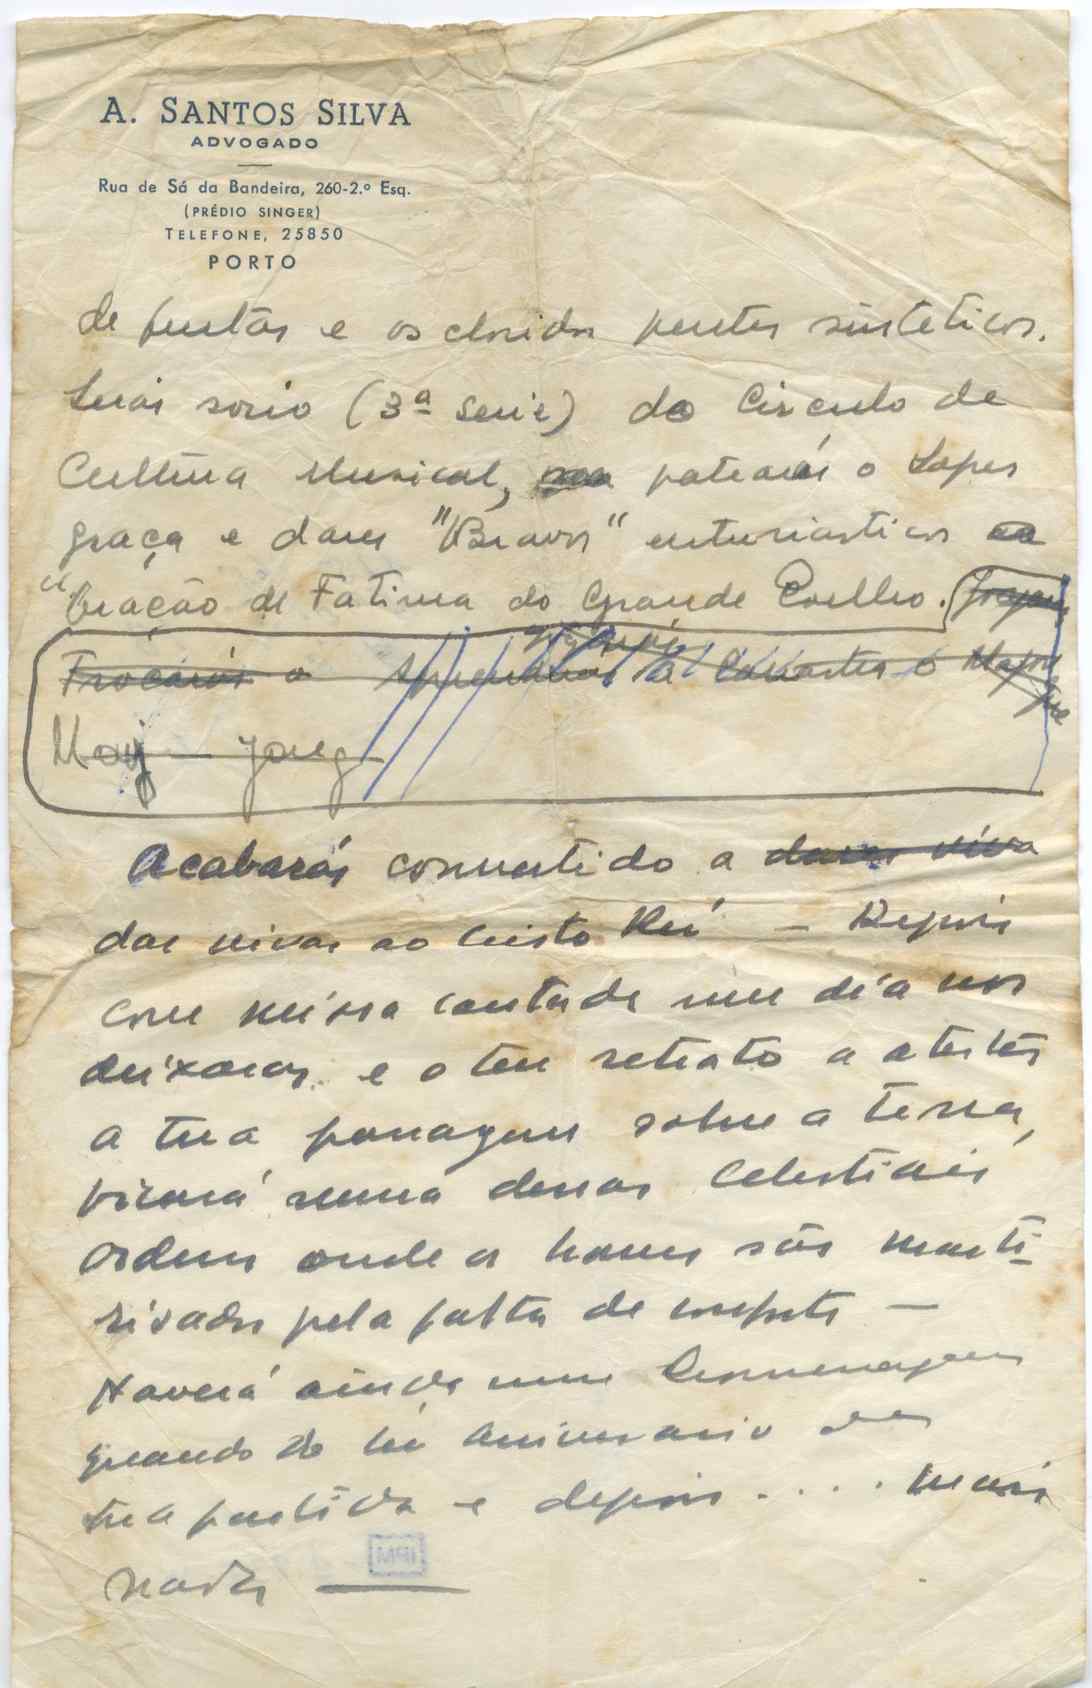 A. SANTOS SILVA
ADVOGADO
Rua de Sá da Bandeira, 260-2.º Esq.
(PRÉDIO SINGER)
TELEFONE, 25850
PORTO
de frutas e os cloridos pentes sinteticos.
Serás socio (3ª Serie) do Circulo de
Cultura Musical, patearás o Lopes
graça e dares "Bravos" entusiasticos
"Oração de Fatima do Grande Coelho.
Trocarás o Aprenderas a
May — jong
Acabarás convertido a dares viva
dar vivas ao Cristo Rei — Depois
com missa cantada um dia nos
deixaras e o teu retrato a atestar
a tua passagem sobre a terra,
ficará numa dessas Celestiais
Ordens onde os homens são marti-
rizados pela falta de conforto —
Haverá ainda uma homenagem
quando do 1º aniversario da
tua partida e depois . . . . mais
nada —
MPI